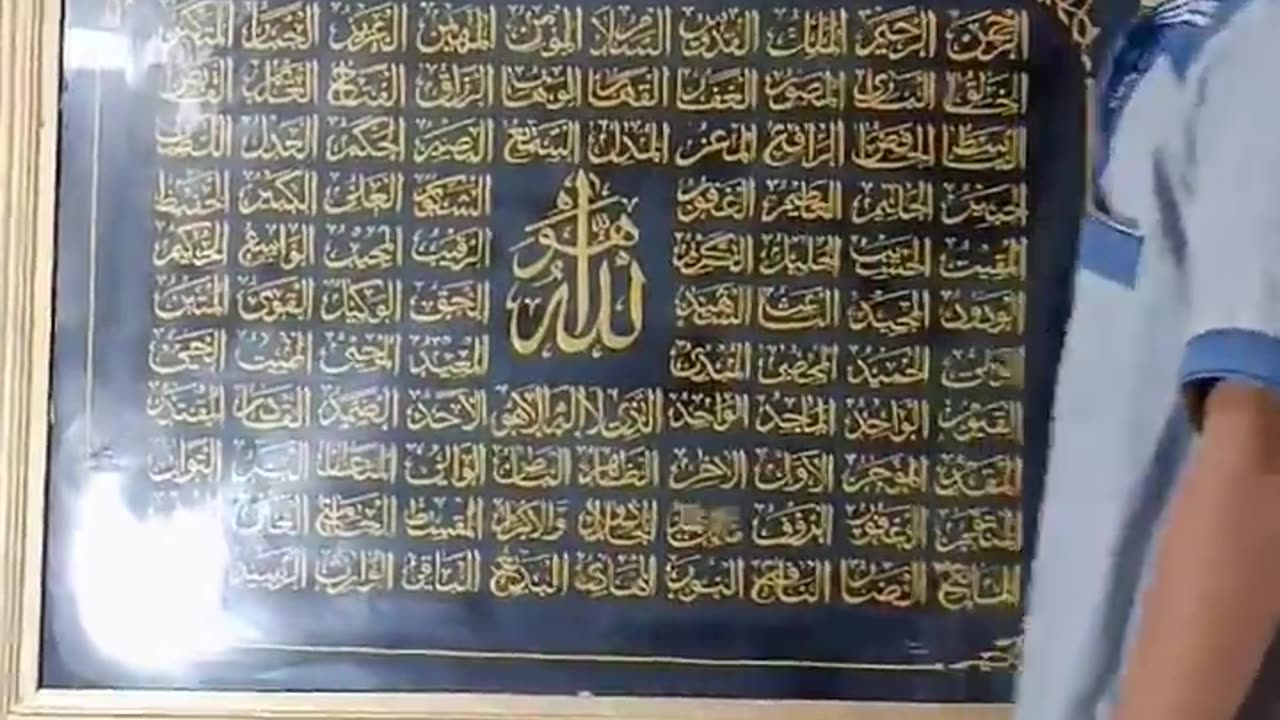 الرحمن الرحيم الملك القدوس السلام المؤمن المهيمن العزيز الجبار المتكبر
الخالق البارئ المصور الغفار القهار الوهاب الرزاق الفتاح العليم القابض
الباسط الخافض الرافع المعز المذل السميع البصير الحكم العدل اللطيف
الخبير الحليم العظيم الغفور الشكور العلي الكبير الحفيظ
هو الله
المقيت الحسيب الجليل الكريم الرقيب المجيب الواسع الحكيم
الودود المجيد الباعث الشهيد الحق الوكيل القوي المتين
الحميد المحصي المبدئ المعيد المحيي المميت الحي
القيوم الواجد الماجد الواحد الذي لا إله إلا هو الأحد الصمد القادر المقتدر
المقدم المؤخر الأول الآخر الظاهر الباطن الوالي المتعال البر التواب
المنتقم العفو الرؤف والإكرام المقسط الجامع
المانع الضار النافع النور الهادي البديع الباقي الوارث الرشيد